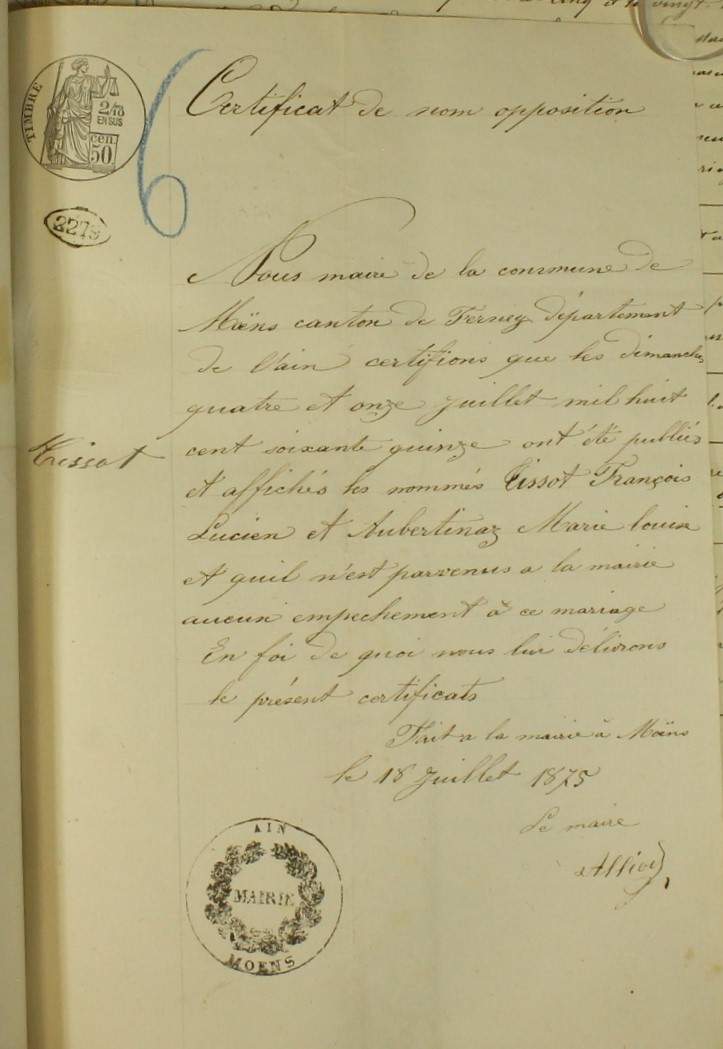 TIMBRE
2/10
EN SUS
cen.
50
2279
6
Certificat de nom opposition
Nous maire de la commune de
Moëns canton de Ferney département
de l'ain certifions que les dimanches
quatre et onze juillet mil huit
Tissot
cent soixante quinze ont été publiés
et affichés les nommés Tissot François
Lucien et Aubertinaz Marie louise
et quil n'est parvenus a la mairie
aucun empechement à ce mariage
En foi de quoi nous lui délivrons
le présent certificats
Fait a la mairie à Moëns
le 18 Juillet 1875
Le maire
AIN
MAIRIE
MOENS